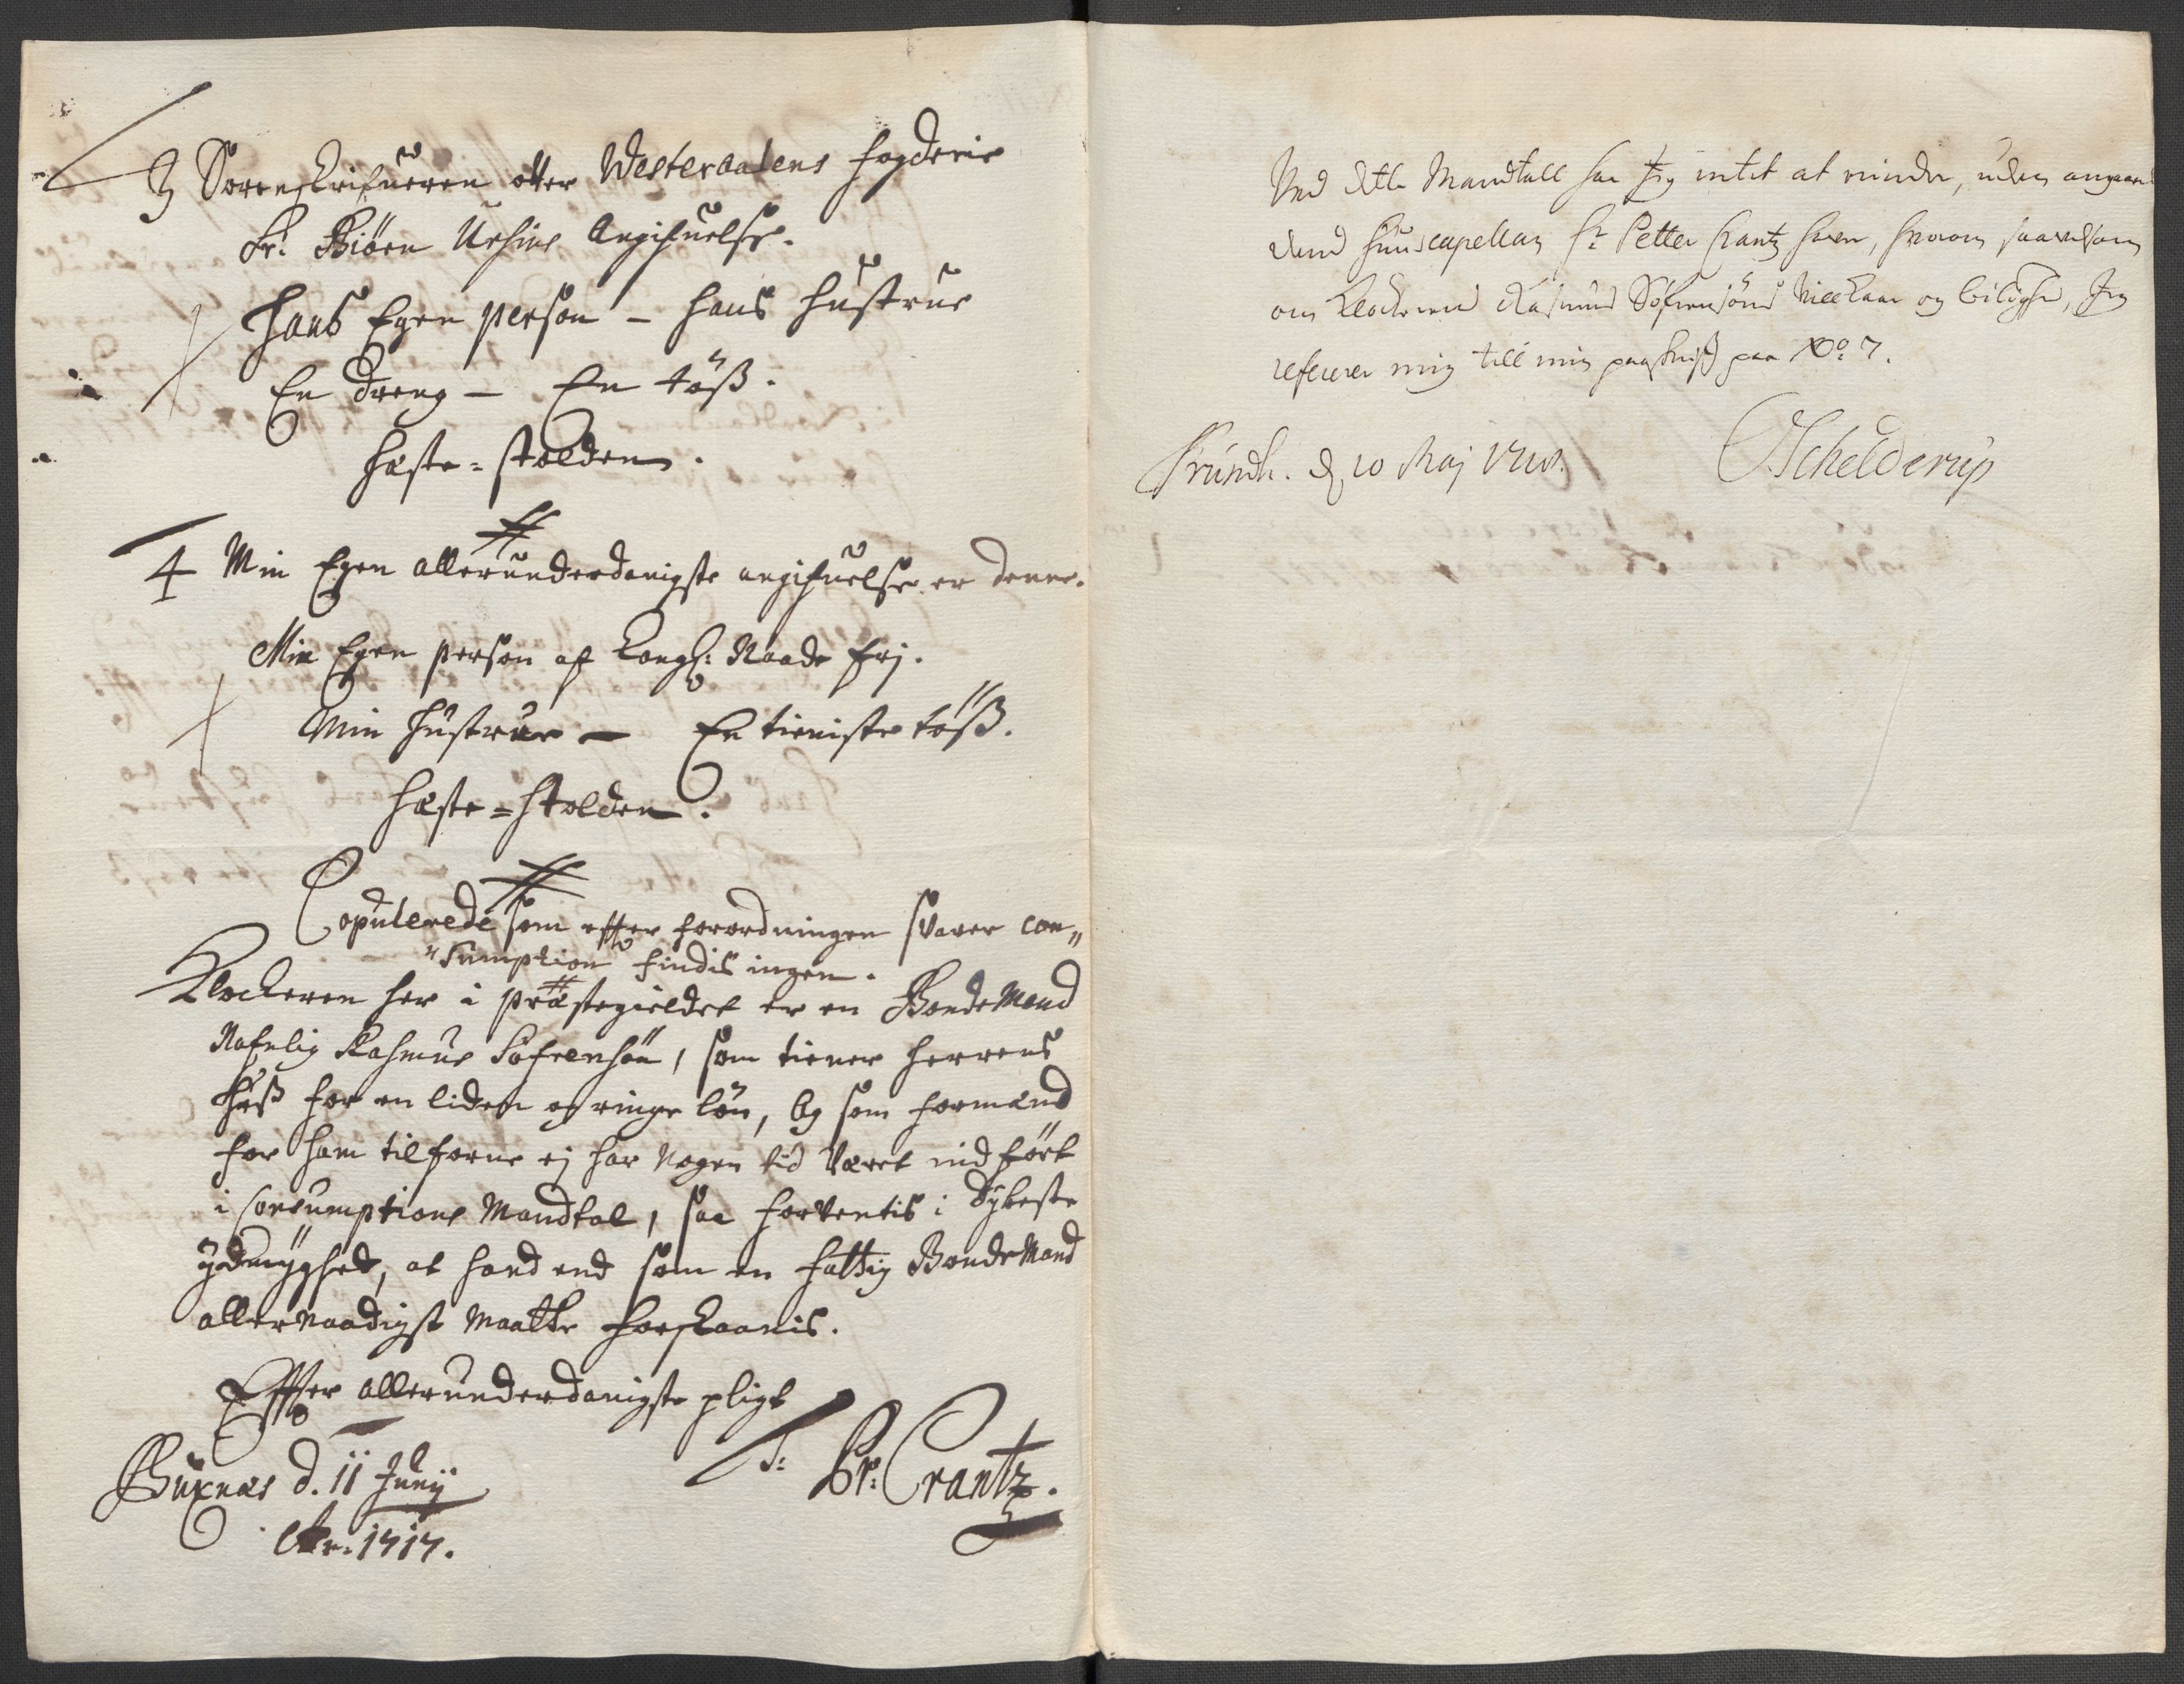 3 Sorenskrifueren ofver Westeraalens fogderie
Sr. Biörn Ursins Angifuelse.
Hans Egen person – hans hustrue
En dreng – En töß.
Hæste-skolden.
4 Min Egen allerunderdanigste angifuelse er denne.
Min Egen person af Kongl: Naade frj.
Min hustrue – En tieniste töß.
Hæste-skolden.
Copulerede som effter forordningen svarer con„
„sumption findis ingen.
Klockeren her i præstegieldet er en Bonde Mand
Nafnlig Rasmus Söfrensön, som tiener Herrens
Huß for en liden og ringe lön, og som formænd
for ham tilforne ej har nogen tid været indfört
i Consumptions Mandtal, saa forventis i dybeste
ydmyghed, at hand end som en fattig Bonde Mand
allernaadigst maatte forskaanis.
Effter allerunderdanigste pligt
Buxnæs d. 11 Junij
Ao. 1717.
Pr: Crantz.
Ved dette Mandtall har Jeg intet at minde, uden angaaend
dend huuscapellan Hr Petter Crantz haver, hvorom saavelsom
om Klocheren Rasmus Söfrensöns vilkaar og biligh, Jeg
refererer mig till min paaskrift paa No: 7.
Trundh. d. 10 Maj 1718.
Schelderup